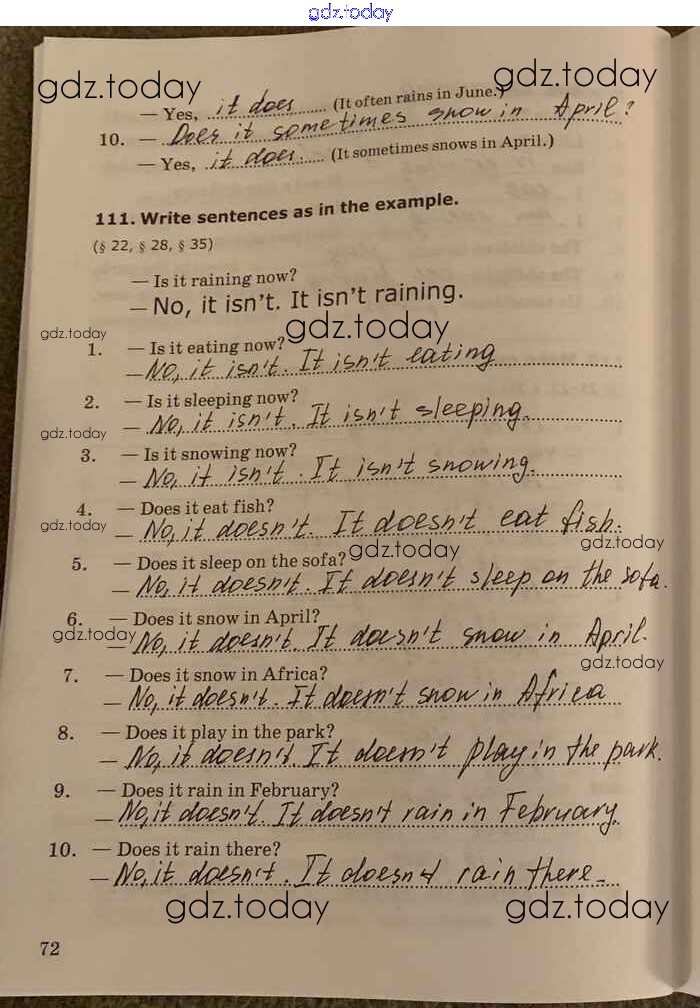 gdz.today
gdz.today gdz.today
— Yes, it does ..... (It often rains in June.)
10. — Does it sometimes snow in April?
— Yes, it does. .... (It sometimes snows in April.)
111. Write sentences as in the example.
(§ 22, § 28, § 35)
— Is it raining now?
— No, it isn't. It isn't raining.
gdz.today gdz.today
1. — Is it eating now?
— No, it isn't. It isn't eating
2. — Is it sleeping now?
— No, it isn't. It isn't sleeping.
gdz.today
3. — Is it snowing now?
— No, it isn't. It isn't snowing.
4. — Does it eat fish?
gdz.today
— No, it doesn't. It doesn't eat fish.
gdz.today gdz.today
5. — Does it sleep on the sofa?
— No, it doesn't. It doesn't sleep on the sofa.
6. — Does it snow in April?
gdz.today
— No, it doesn't. It doesn't snow in April.
gdz.today
7. — Does it snow in Africa?
— No, it doesn't. It doesn't snow in Africa
8. — Does it play in the park?
— No, it doesn't. It doesn't play in the park.
9. — Does it rain in February?
— No, it doesn't. It doesn't rain in February.
10. — Does it rain there?
— No, it doesn't. It doesn't rain there.
gdz.today gdz.today
72